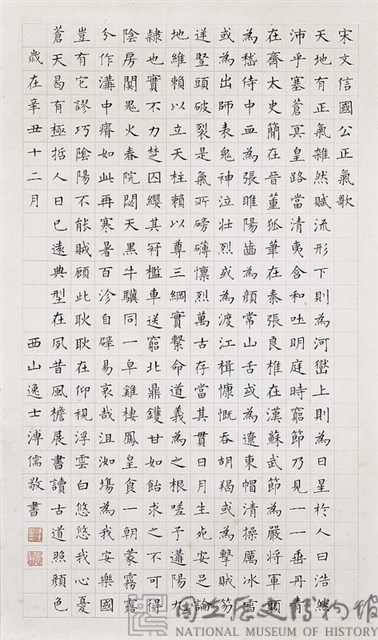 宋文信國公正氣歌
天地有正氣雜然賦流形下則為河嶽上則為日星於人曰浩然
沛乎塞蒼冥皇路當清夷含和吐明庭時窮節乃見一一垂丹青
在齊太史簡在晉董狐筆在秦張良椎在漢蘇武節為嚴將軍頭
為嵇侍中血為張睢陽齒為顏常山舌或為遼東帽清操厲冰雪
或為出師表鬼神泣壯烈或為渡江楫慷慨吞胡羯或為擊賊笏
逆豎頭破裂是氣所磅礴凜烈萬古存當其貫日月生死安足論
地維賴以立天柱賴以尊三綱實繫命道義為之根嗟予遘陽九
隸也實不力楚囚纓其冠檻車送窮北鼎鑊甘如飴求之不可得
陰房闃鬼火春院閟天黑牛驥同一皁雞棲鳳皇食一朝蒙霧露
分作溝中瘠如此再寒暑百沴自辟易哀哉沮洳場為我安樂國
豈有它謬巧陰陽不能賊顧此耿耿在仰視浮雲白悠悠我心憂
蒼天曷有極悊人日已遠典型在夙昔風檐展書讀古道照顏色
歲在辛丑十二月 西山逸士溥儒敬書
國立歷史博物館
NATIONAL MUSEUM OF HISTORY